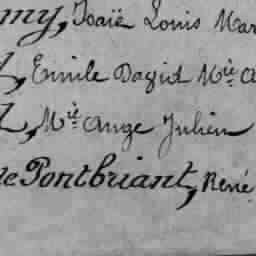 my, Isaïe Louis Mar
, Emile David Mie A
, Mie Ange Julien
de Pontbriant, René